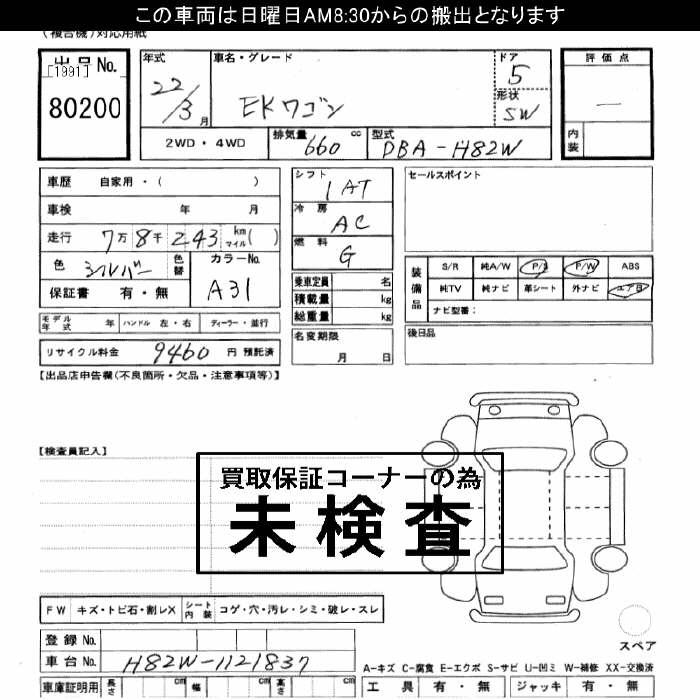 この車両は日曜日AM8:30からの搬出となります
(複合機)対応用紙
出品No.
[1991]
80200
年式
22/3月
車名・グレード
EKワゴン
ドア
5
形状
SW
評価点
―
内装
2WD・4WD
排気量 660 cc
型式 DBA-H82W
車歴 自家用・( )
車検 年 月
走行 7万8千243 km マイル( )
色 シルバー
色替
カラーNo.
A31
保証書 有・無
シフト
1AT
冷房
AC
燃料
G
乗車定員 名
積載量 kg
総重量 kg
セールスポイント
装備品
S/R 純A/W P/S P/W ABS
純TV 純ナビ 革シート 外ナビ エアB
ナビ型番:
モデル年式 年 ハンドル 左・右 ディーラー・並行
リサイクル料金 9460 円 預託済
名変期限
月 日
後日品
【出品店申告欄(不良箇所・欠品・注意事項等)】
【検査員記入】
買取保証コーナーの為
未検査
FW キズ・トビ石・割レX シート内装 コゲ・穴・汚レ・シミ・破レ・スレ
登録No.
車台No. H82W-1121837
スペア
A-キズ C-腐食 E-エクボ S-サビ U-凹ミ W-補修 XX-交換済
車庫証明用 長さ cm 幅 cm 高さ cm
工具 有・無 ジャッキ 有・無